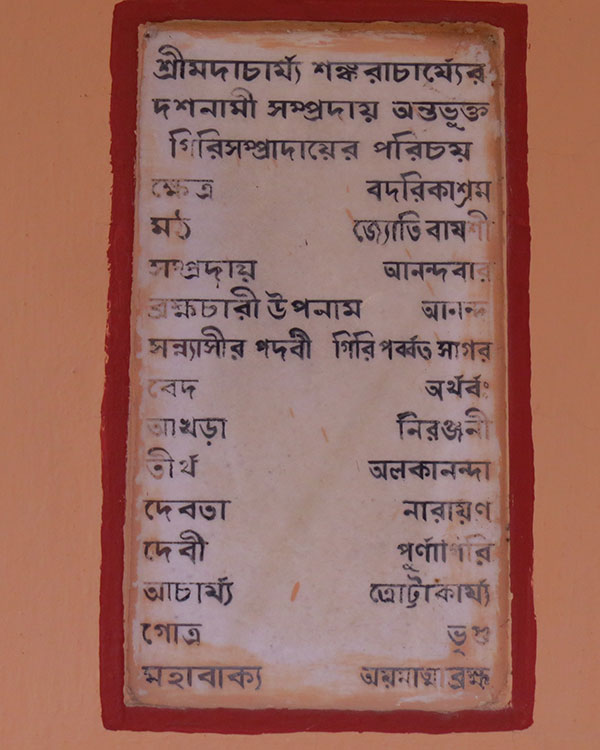 শ্রীমদাচার্য্য শঙ্করাচার্য্যের
দশনামী সম্প্রদায় অন্তভূক্ত
গিরিসম্প্রাদায়ের পরিচয়
ক্ষেত্র বদরিকাশ্রম
মঠ
সম্প্রদায় আনন্দবার
ব্রহ্মচারী উপনাম আনন্দ
সন্ন্যাসীর পদবী গিরি পর্ব্বত সাগর
বেদ অর্থর্বঃ
আখড়া নিরঞ্জনী
তীর্থ অলকানন্দা
দেবতা নারায়ণ
দেবী পূর্ণাগিরি
আচার্য্য ত্রোট্টাকার্য্য
গোত্র ভৃগু
মহাবাক্য অয়মাত্মা ব্রহ্ম